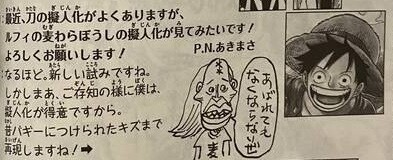 最近、刀の擬人化がよくありますが、
ルフィの麦わらぼうしの擬人化が見てみたいです!
よろしくお願いします!
P.N.あきまさ
なるほど。新しい試みですね。
しかしまあ、ご存知の様に僕は、
擬人化が得意ですから。
昔バギーにつけられたキズまで
再現しますね!➡
あばれても
なくならないぜ
麦